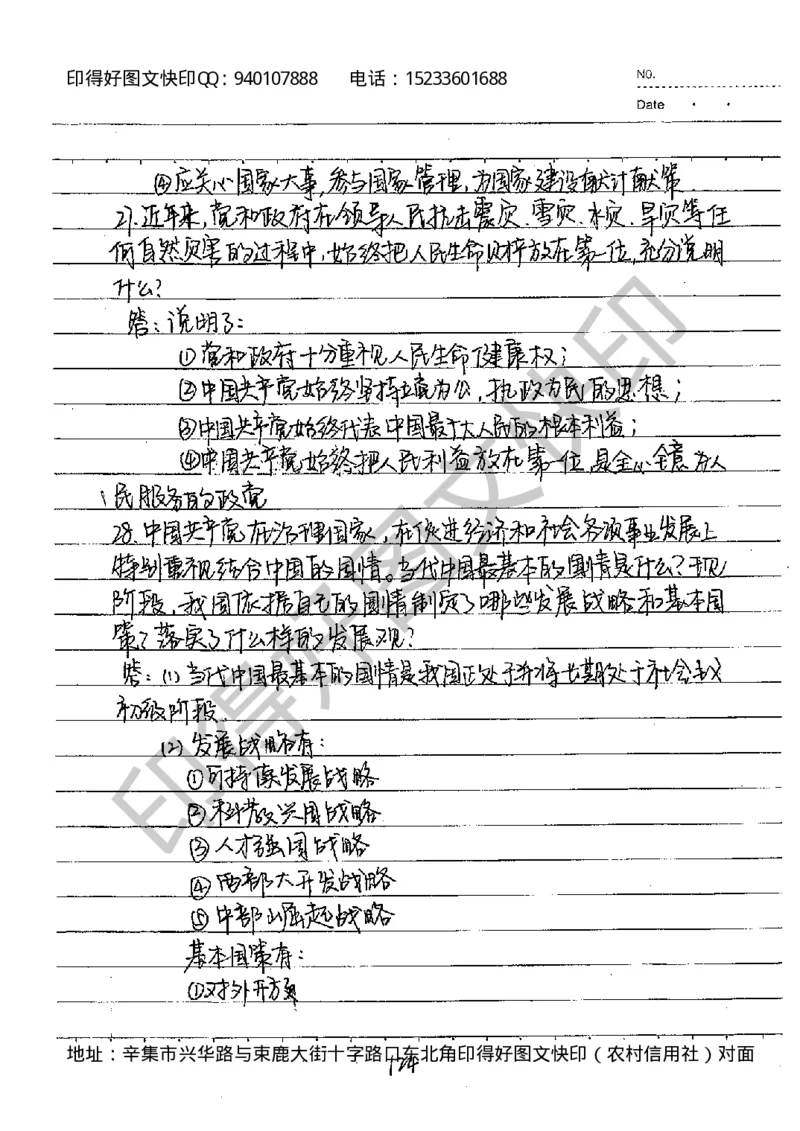 印得好图文快印QQ：940107888 电话：15233601688
NO.
Date
④应关心国家大事,参与国家管理,为国家建设献计献策
27.近年来,党和政府在领导人民抗击震灾、雪灾、水灾、旱灾等任
何自然灾害的过程中,始终把人民生命财产放在第一位,充分说明
什么?
答：说明了：
①党和政府十分重视人民生命健康权；
②中国共产党始终坚持立党为公，执政为民的思想；
③中国共产党始终代表中国最广大人民的根本利益；
④中国共产党始终把人民利益放在第一位,是全心全意为人
民服务的政党
28.中国共产党在治理国家，在促进经济和社会各项事业发展上
特别重视结合中国的国情。当代中国最基本的国情是什么?现
阶段,我国依据自己的国情制定了哪些发展战略和基本国
策?落实了什么样的发展观?
答：(1)当代中国最基本的国情是我国正处于并将长期处于社会主义
初级阶段.
(2)发展战略有：
①可持续发展战略
②科教兴国战略
③人才强国战略
④西部大开发战略
⑤中部崛起战略
基本国策有：
①对外开放
地址：辛集市兴华路与束鹿大街十字路口东北角印得好图文快印（农村信用社）对面
124
印得好图文快印